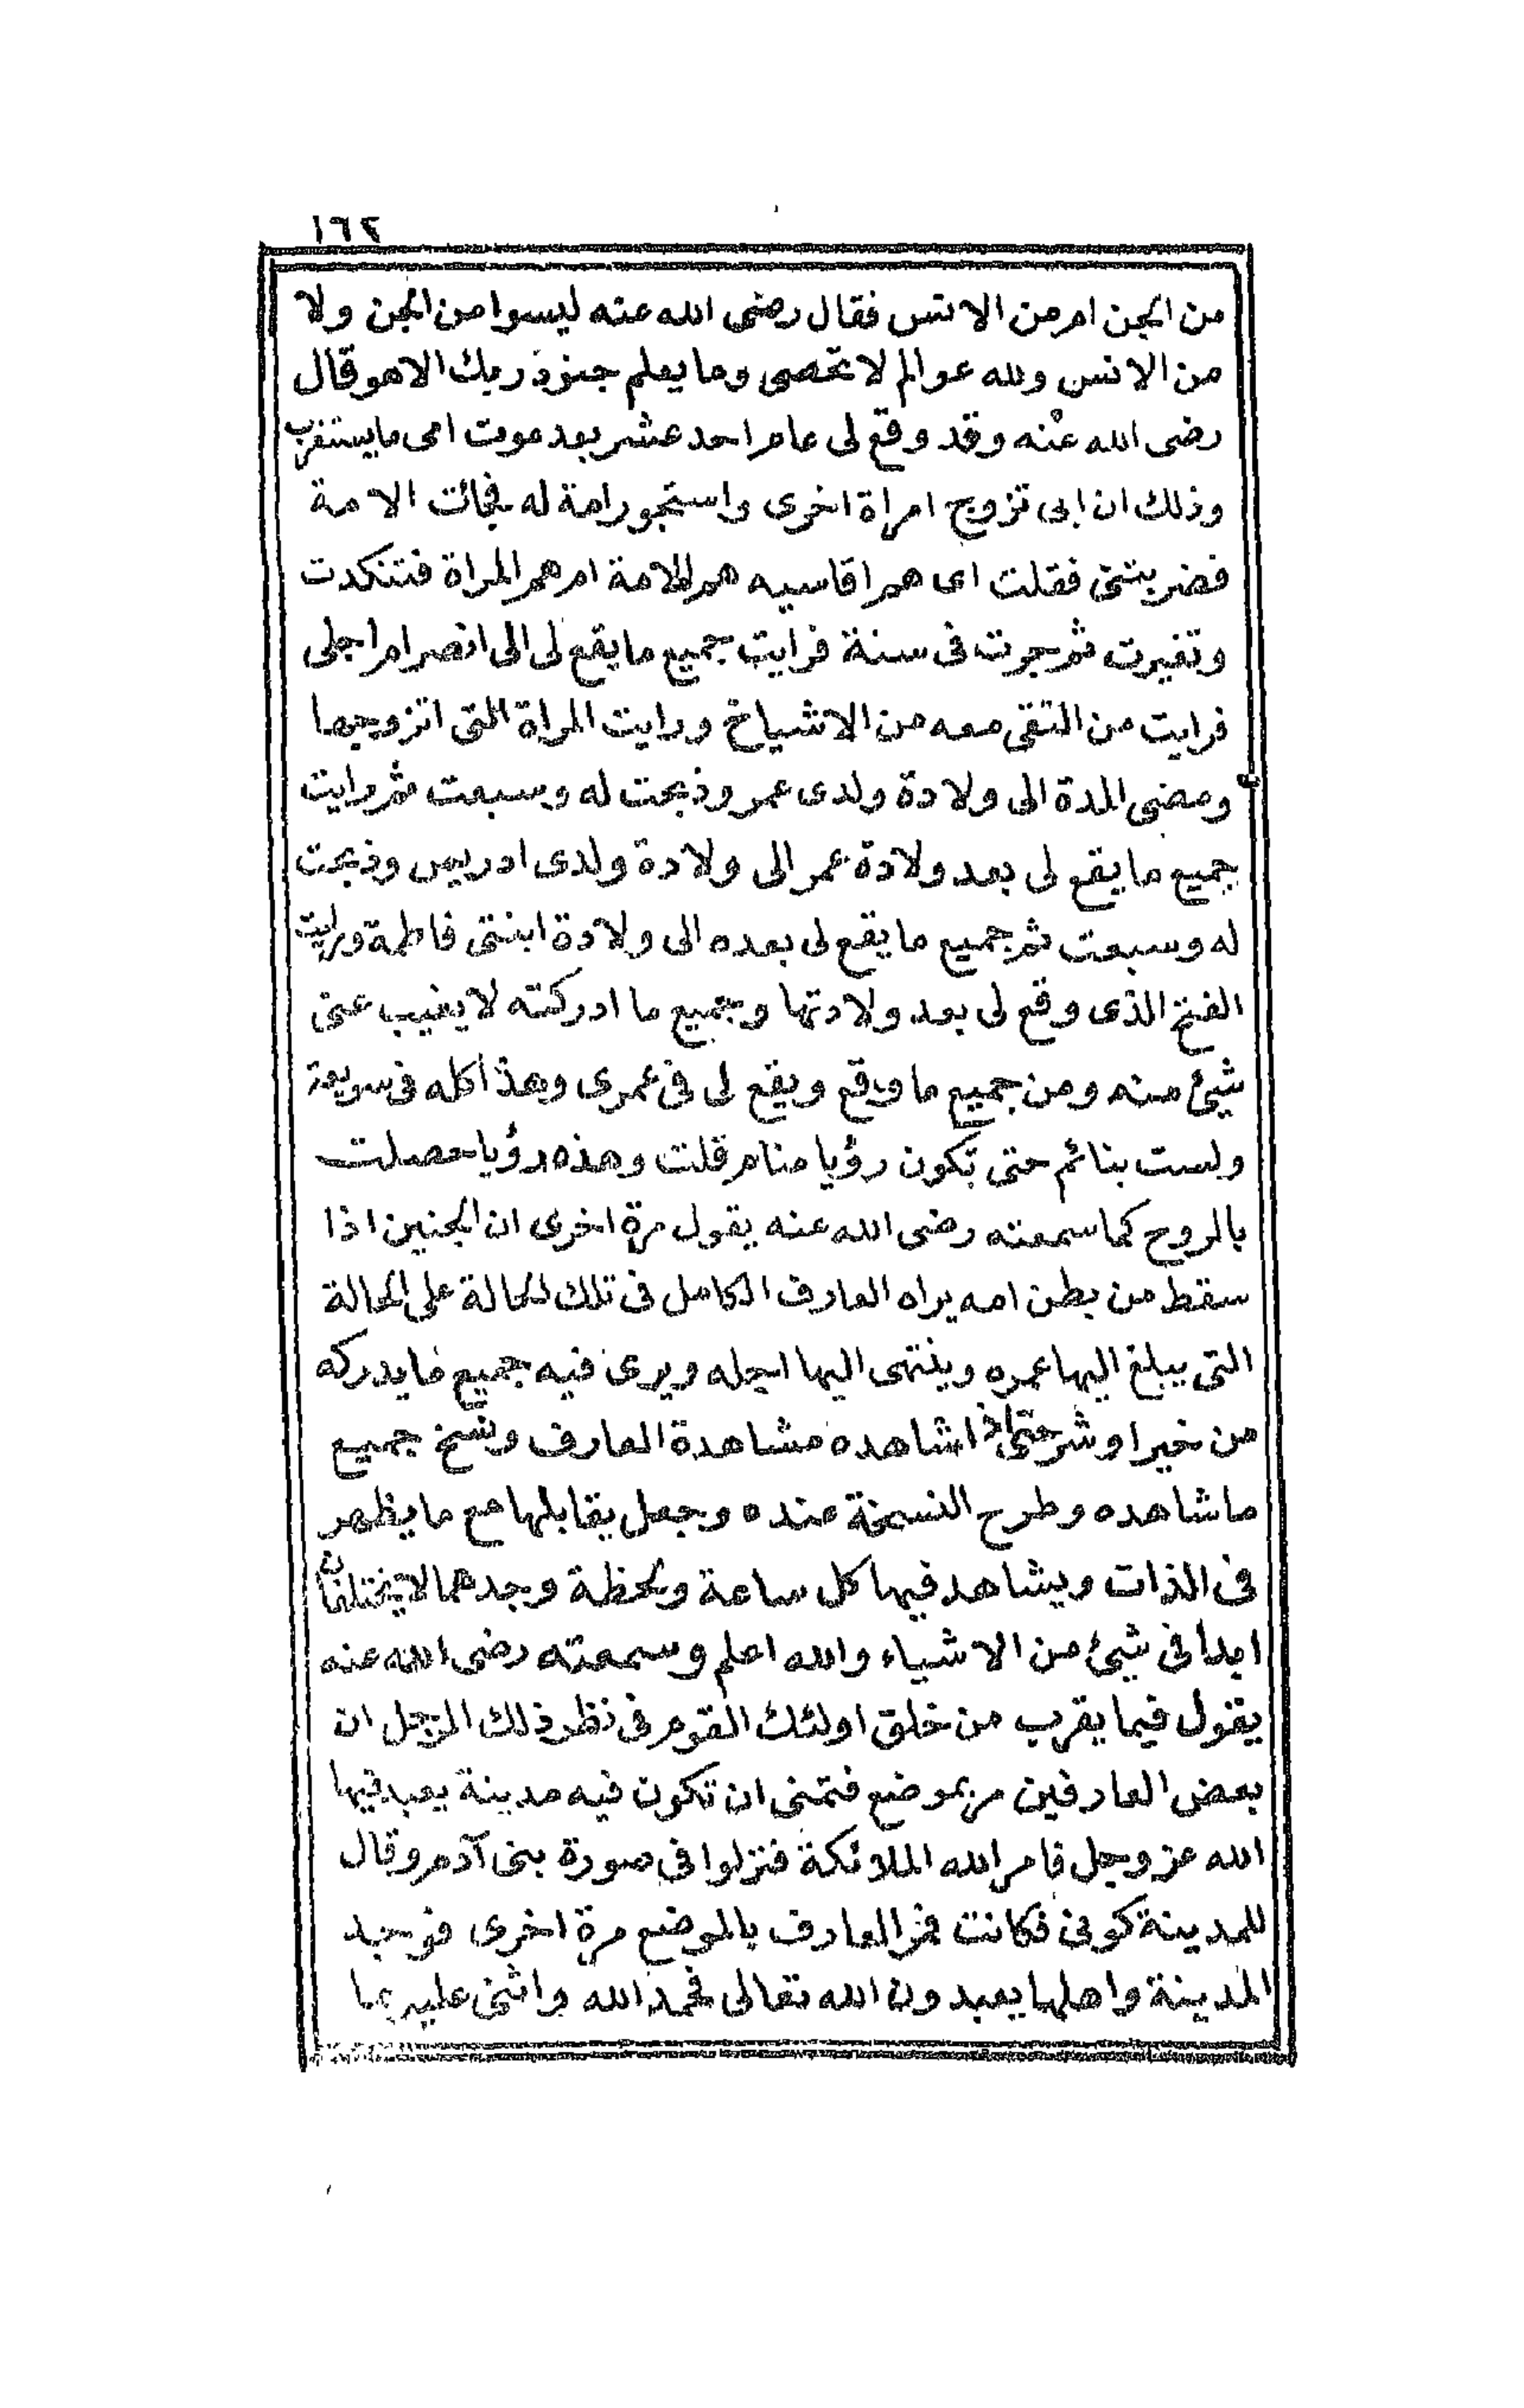 ١٦٢
من الجن ام من الانس فقال رضى الله عنه ليسوا من الجن ولا
من الانس ولله عوالم لا تحصى وما يعلم جنود ربك الا هو قال
رضى الله عنه وقد وقع لى عام احد عشر بعد موت امى ما يستغرب
وذلك ان ابى تزوج امراة اخرى واستجور امة له فجائت الامة
فضربتنى فقلت اى هم اقاسيه هم الامة ام هم المراة فتنكدت
وتغيرت ثم جرت فى سنة فرايت جميع ما يقع لى الى انصرام اجلى
فرايت من التقى معه من الاشياخ ورايت المراة التى اتزوجها
ومضى المدة الى ولادة ولدى عمر وذبحت له وسبعت ثم رايت
جميع ما يقع لى بعد ولادة عمر الى ولادة ولدى ادريس وذبحت
له وسبعت ثم جميع ما يقع لى بعده الى ولادة ابنتى فاطمة ورايت
الفتح الذى وقع لى بعد ولادتها وجميع ما ادركته لا يغيب عنى
شيئ منه ومن جميع ما وقع ويقع لى فى عمرى وهذا كله فى سويعة
ولست بنائم حتى تكون رؤيا منام قلت وهذه رؤيا حصلت
بالروح كما سمعته رضى الله عنه يقول مرة اخرى ان الجنين اذا
سقط من بطن امه يراه العارف الكامل فى تلك الحالة على الحالة
التى يبلغ اليها عمره وينتهى اليها اجله ويرى فيه جميع ما يدركه
من خير او شر حتى اذا شاهده مشاهدة العارف ونسخ جميع
ما شاهده وطرح النسخة عنده وجعل يقابلها مع ما يظهر
فى الذات ويشاهد فيها كل ساعة ولحظة وجدهما لا يختلفان
ابدا فى شيئ من الاشياء والله اعلم وسمعته رضى الله عنه
يقول فيما يقرب من خلق اولئك القوم فى نظر ذلك الرجل ان
بعض العارفين مر بموضع فتمنى ان تكون فيه مدينة يعبد فيها
الله عز وجل فامر الله الملائكة فنزلوا فى صورة بنى آدم وقال
للمدينة كونى فكانت فمر العارف بالموضع مرة اخرى فوجد
المدينة واهلها يعبدون الله تعالى فحمد الله واثنى عليه بما